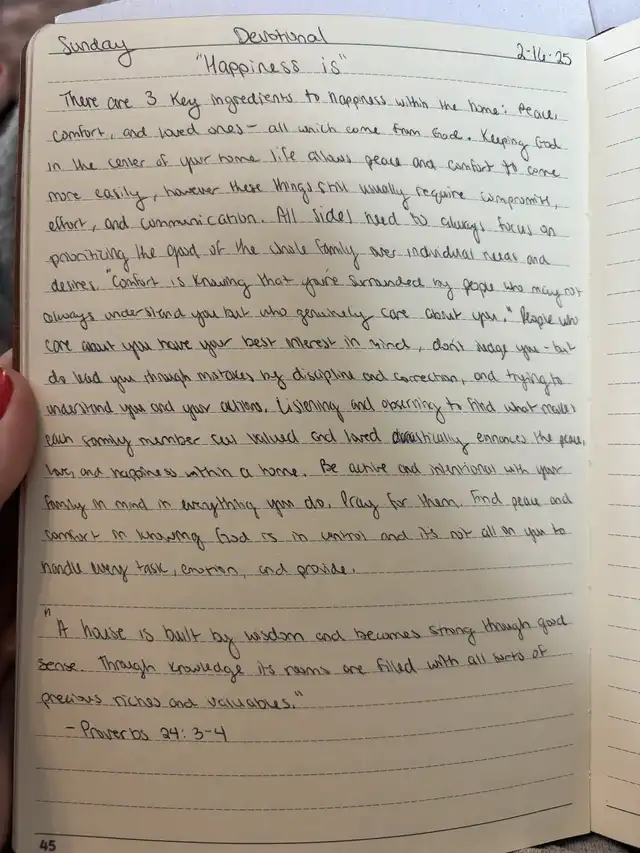 Sunday Devotional 2-16-25
"Happiness is"
There are 3 key ingredients to happiness within the home: Peace,
comfort, and loved ones - all which come from God. Keeping God
in the center of your home life allows peace and comfort to come
more easily, however these things still usually require compromise,
effort, and communication. All sides need to always focus on
prioritizing the good of the whole family over individual needs and
desires. "Comfort is knowing that you're surrounded by people who may not
always understand you but who genuinely care about you." People who
care about you have your best interest in mind, don't judge you - but
do lead you through mistakes by discipline and correction, and trying to
understand you and your actions. Listening and observing to find what makes
each family member feel valued and loved drastically enhances the peace,
love, and happiness within a home. Be active and intentional with your
family in mind in everything you do. Pray for them. Find peace and
comfort in knowing God is in control and it's not all on you to
handle every task, emotion, and provide.
"A house is built by wisdom and becomes strong through good
sense. Through knowledge its rooms are filled with all sorts of
precious riches and valuables."
- Proverbs 24: 3-4
45